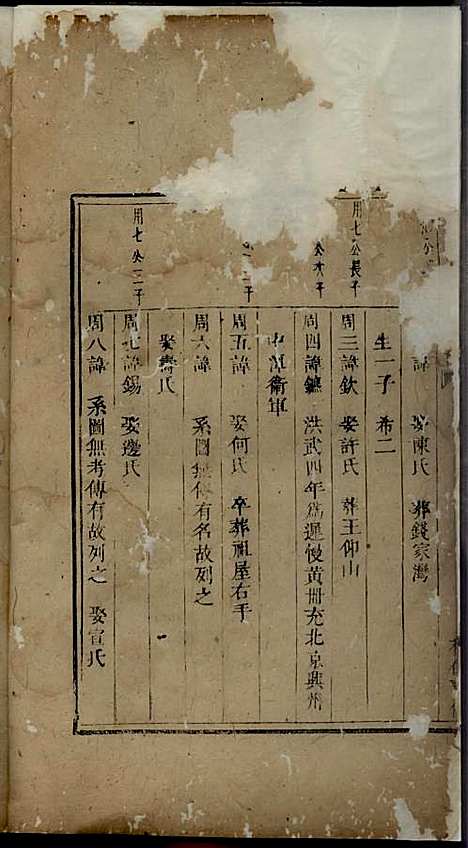 諱 娶陳氏 葬錢家灣
生一子 希二
用七公長子
周三諱欽 娶許氏 葬王仰山
公次子
周四諱鑣 洪武四年爲遲慢黃冊充北京興州
中衛軍
子
周五諱 娶何氏 卒葬祖屋右手
周六諱 系圖無傳有名故列之
娶氏
用七公三子
周七諱錫 娶邊氏
周八諱 系圖無考傳有故列之 娶宣氏